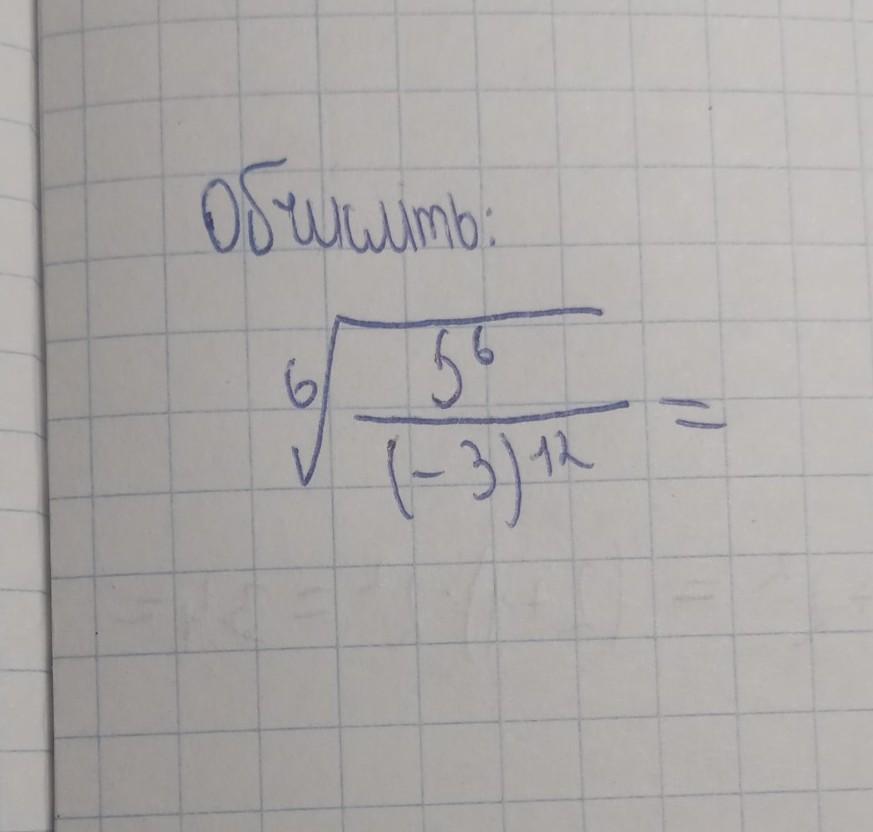 Обчислить:
\sqrt[6]{\frac{5^6}{(-3)^{12}}} =